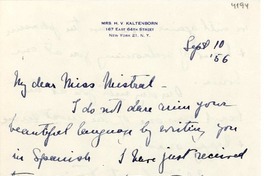 4894
MRS. H. V. KALTENBORN
167 EAST 64TH STREET
NEW YORK 21, N. Y.
Sept 10
'56
My dear Miss Mistral -
I do not dare ruin your
beautiful language by writing you
in Spanish I have just received